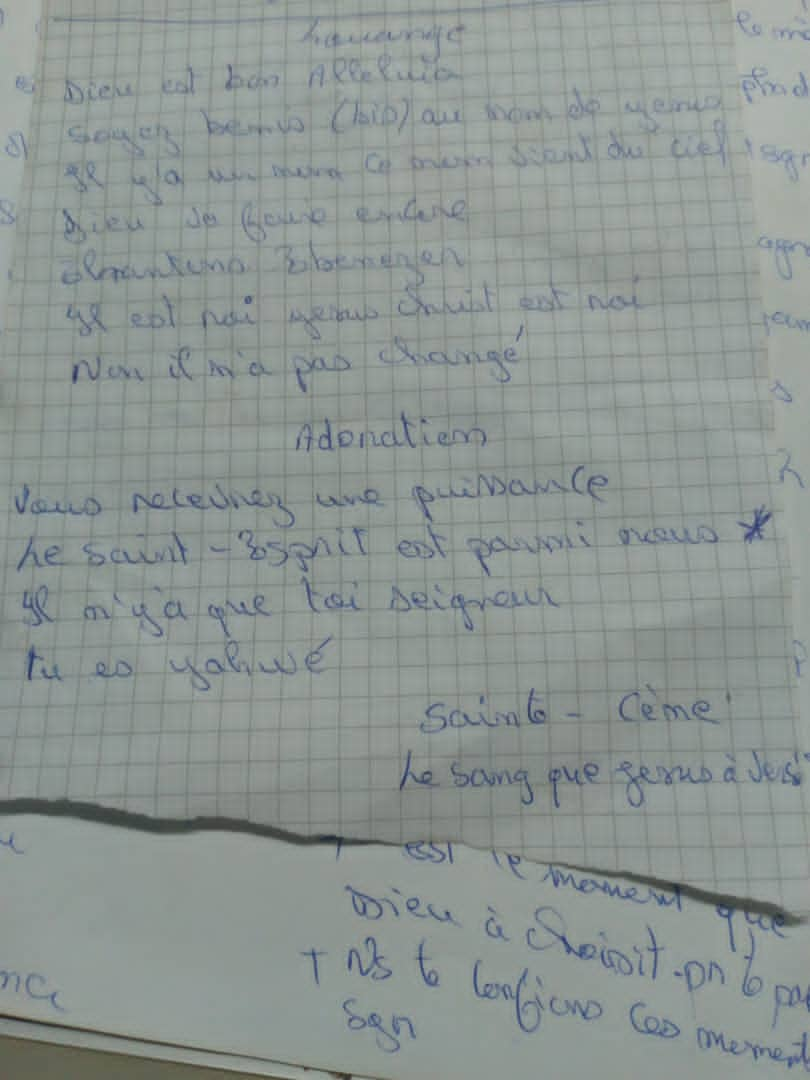 Louange
Dieu est bon Alleluia
Soyez benis (bis) au nom de yesus
Il y'a un nom ce nom vient du ciel
Dieu le faire encore
Ebenezer
Il est roi yesus Christ est roi
Non il n'a pas changé
Adoration
Vous recevrez une puissance
Le Saint-Esprit est parmi nous *
Il n'y'a que toi seigneur
tu es yahwé
Sainte - Cène
Le sang que jesus à versé
est le moment que
Dieu à choisit
+ Ns te confions ces moment
Sgn